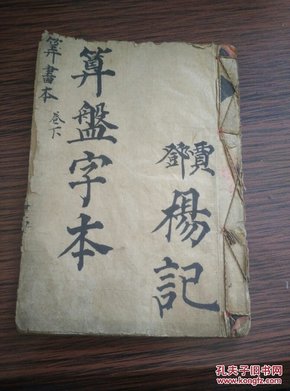 鄧賈
楊記
算盤字本
算書本 卷下
孔夫子旧书网